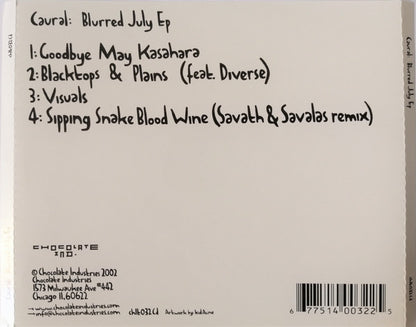 Caural: Blurred July Ep
1: Goodbye May Kasahara
2: Blacktops & Plains (feat. Diverse)
3: Visuals
4: Sipping Snake Blood Wine (Savath & Savalas remix)
CHOCOLATE
IND.
© Chocolate Industries 2002
Chocolate Industries
1573 Milwaukee Ave #442
Chicago Il. 60622
www.chocolateindustries.com
info@chocolateindustries.com
chlt032cd
Artwork by kid娃
6 77514 00322 5
Caural: Blurred July Ep
chlt032cd